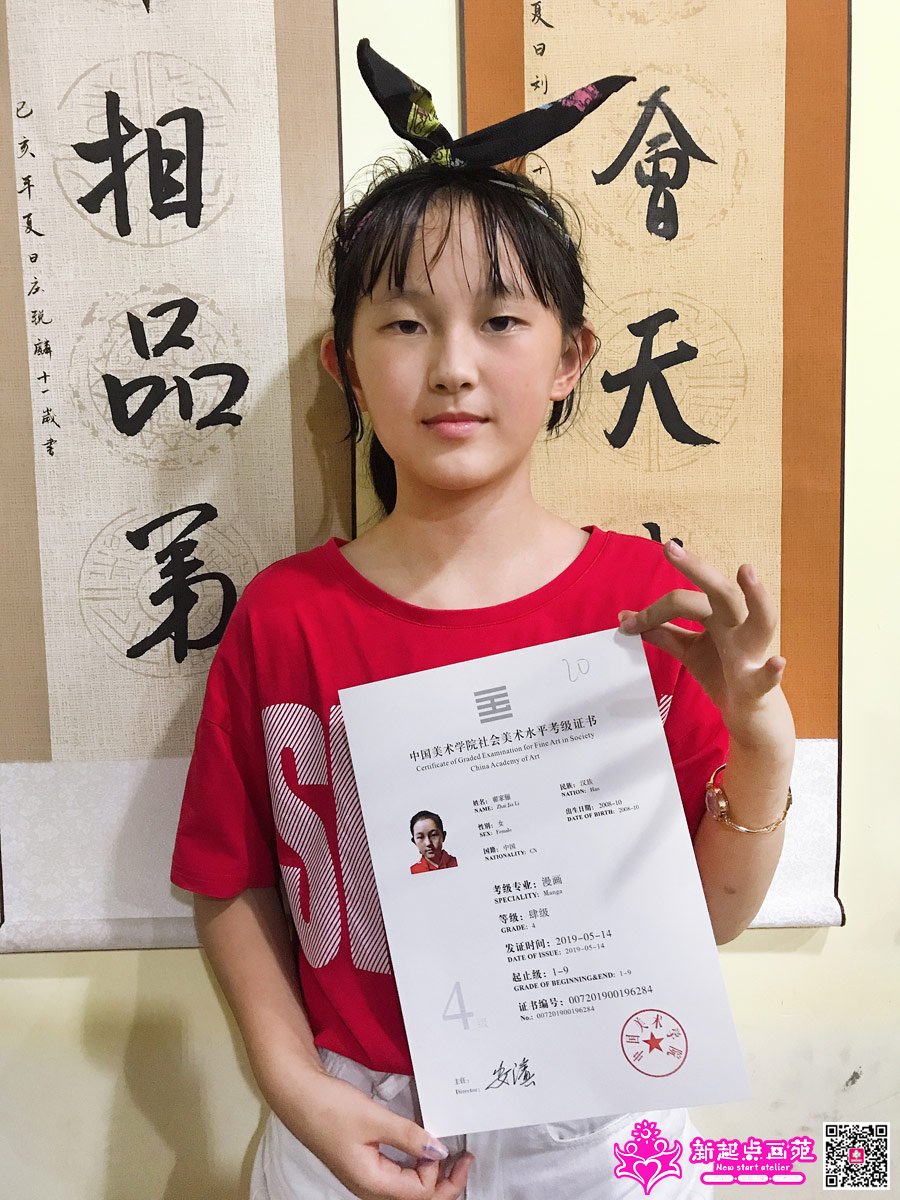 相品弟
己亥年夏日
麟十一歲書
夏日刘
十
會天
20
中国美术学院社会美术水平考级证书
Certificate of Graded Examination for Fine Art in Society
China Academy of Art
姓名：翟家俪
NAME: Zhai Jia Li
民族：汉族
NATION: Han
性别：女
SEX: Female
出生日期：2008-10
DATE OF BIRTH: 2008-10
国籍：中国
NATIONALITY: CN
考级专业：漫画
SPECIALITY: Manga
等级：肆级
GRADE: 4
发证时间：2019-05-14
DATE OF ISSUE: 2019-05-14
起止级：1-9
GRADE OF BEGINNING&END: 1-9
证书编号：007201900196284
No.: 007201900196284
4级
主任：
Director:
中国美术学院
新起点画苑
New start atelier